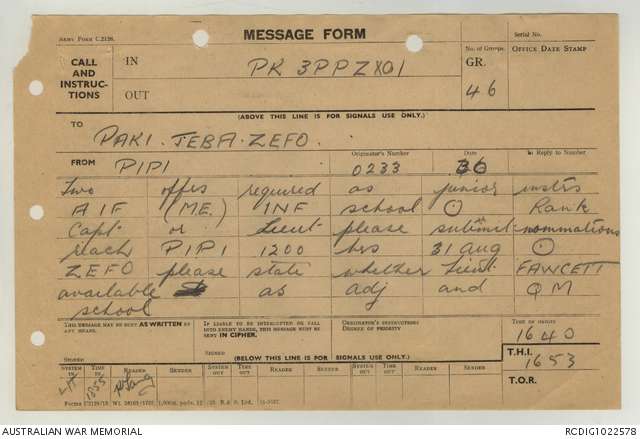 ARMY FORM C.2128.
MESSAGE FORM
Serial No.
CALL AND INSTRUC-TIONS
IN
PK 3PPZX01
No. of Groups.
GR.
46
OFFICE DATE STAMP
OUT
(ABOVE THIS LINE IS FOR SIGNALS USE ONLY.)
TO
PAKI . JEBA . ZEFO .
FROM
PIPI
Originator's Number
0233
Date
30
In Reply to Number
Two offrs required as junior instrs
AIF (ME.) INF school ⊙ Rank
Capt or Lieut please submit nominations
reach PIPI 1200 hrs 31 aug ⊙
ZEFO please state whether Lieut FAWCETT
available as adj and QM
school
THIS MESSAGE MAY BE SENT AS WRITTEN BY ANY MEANS.
IF LIABLE TO BE INTERCEPTED OR FALL INTO ENEMY HANDS, THIS MESSAGE MUST BE SENT IN CIPHER.
ORIGINATOR'S INSTRUCTIONS
DEGREE OF PRIORITY
TIME OF ORIGIN
1640
SIGNED
SIGNED
(BELOW THIS LINE IS FOR SIGNALS USE ONLY.)
T.H.I.
1653
SYSTEM IN
TIME IN
READER
SENDER
SYSTEM
TIME OUT
READER
SENDER
SYSTEM
TIME OUT
READER
SENDER
T.O.R.
1855
AUSTRALIAN WAR MEMORIAL
RCDIG1022578